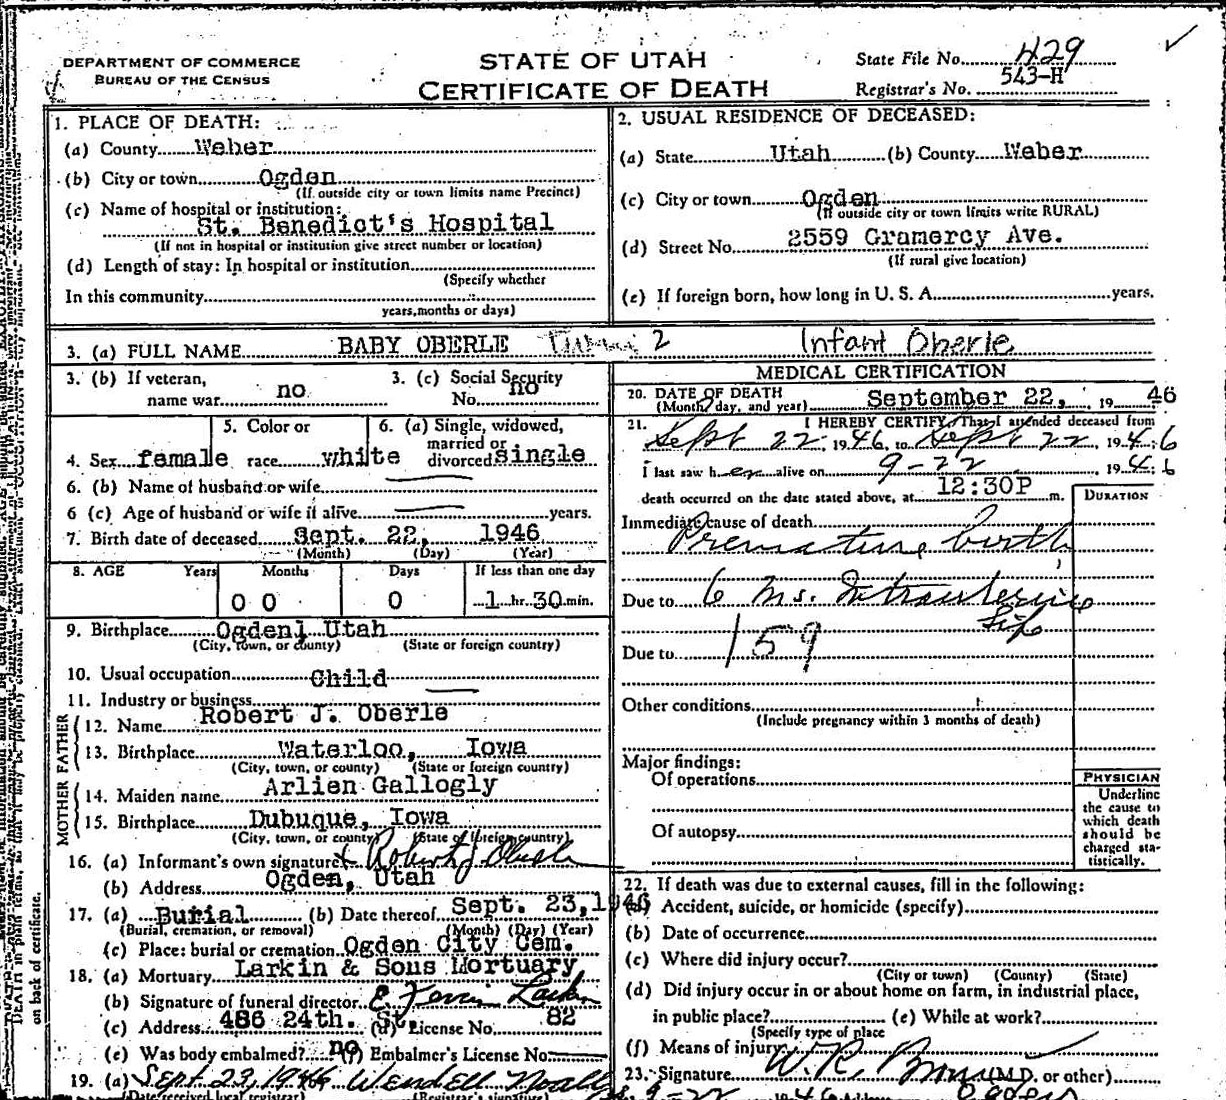 DEPARTMENT OF COMMERCE
BUREAU OF THE CENSUS
STATE OF UTAH
CERTIFICATE OF DEATH
State File No. 429
Registrar's No. 543-H
1. PLACE OF DEATH:
(a) County Weber
(b) City or town Ogden
(If outside city or town limits name Precinct)
(c) Name of hospital or institution:
St. Benedict's Hospital
(If not in hospital or institution give street number or location)
(d) Length of stay: In hospital or institution
(Specify whether
In this community
years, months or days)
2. USUAL RESIDENCE OF DECEASED:
(a) State Utah (b) County Weber
(c) City or town Ogden
(If outside city or town limits write RURAL)
(d) Street No. 2559 Gramercy Ave.
(If rural give location)
(e) If foreign born, how long in U. S. A. years.
3. (a) FULL NAME BABY OBERLE 2 Infant Oberle
3. (b) If veteran, name war no
3. (c) Social Security No. no
4. Sex female
5. Color or race white
6. (a) Single, widowed, married or divorced single
6. (b) Name of husband or wife
6 (c) Age of husband or wife if alive years.
7. Birth date of deceased Sept. 22, 1946
(Month) (Day) (Year)
8. AGE Years Months Days If less than one day
0 0 0 1 hr. 30 min.
9. Birthplace Ogden, Utah
(City, town, or county) (State or foreign country)
10. Usual occupation Child
11. Industry or business
FATHER
12. Name Robert J. Oberle
13. Birthplace Waterloo, Iowa
(City, town, or county) (State or foreign country)
MOTHER
14. Maiden name Arlien Gallogly
15. Birthplace Dubuque, Iowa
(City, town, or county) (State of foreign country)
16. (a) Informant's own signature Robert J Oberle
(b) Address Ogden, Utah
17. (a) Burial (b) Date thereof Sept. 23, 1946
(Burial, cremation, or removal) (Month) (Day) (Year)
(c) Place: burial or cremation Ogden City Cem.
18. (a) Mortuary Larkin & Sons Mortuary
(b) Signature of funeral director E Ferrin Larkin
(c) Address 486 24th. St. (d) License No. 82
(e) Was body embalmed? no (f) Embalmer's License No.
19. (a) Sept 23, 1946 Wendell Noall
(Date received local registrar) (Registrar's signature)
MEDICAL CERTIFICATION
20. DATE OF DEATH September 22, 1946
(Month, day, and year)
21. I HEREBY CERTIFY, That I attended deceased from
Sept 22 1946, to Sept 22, 1946
I last saw her alive on 9-22 1946
death occurred on the date stated above, at 12:30P m.
DURATION
Immediate cause of death
Premature birth
Due to 6 ms. Intrauterine life
159
Due to
Other conditions
(Include pregnancy within 3 months of death)
Major findings:
Of operations
Of autopsy
PHYSICIAN
Underline
the cause to
which death
should be
charged sta-
tistically.
22. If death was due to external causes, fill in the following:
(a) Accident, suicide, or homicide (specify)
(b) Date of occurrence
(c) Where did injury occur?
(City or town) (County) (State)
(d) Did injury occur in or about home on farm, in industrial place,
in public place? (e) While at work?
(Specify type of place
(f) Means of injury
23. Signature W. R. (M.D. or other)
9-22 1946 Address Ogden
on back of certificate.